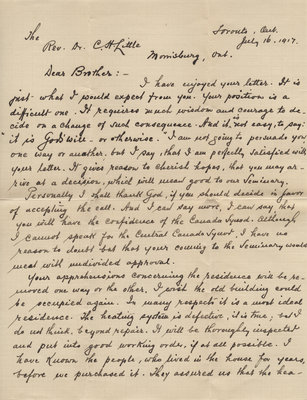 Toronto, Ont.
July 16, 1917.
The
Rev. Dr. C. H. Little
Morrisburg, Ont.
Dear Brother:-
I have enjoyed your letter. It is
just what I would expect from you. Your position is a
difficult one. It requires much wisdom and courage to de-
cide on a change of such consequence. And it is not easy, to say:
"it is God's will - or otherwise." I am not going to persuade you
one way or another. but I say, that I am perfectly satisfied with
your letter. It gives reason to cherish hopes, that you may ar-
rive at a decision, which will mean good to our Seminary.
Personally I shall thank God, if you should decide in favor
of accepting the call. And I can say more, I can say that
you will have the confidence of the Canada Synod. Although
I cannot speak for the Central Canada Synod, I have no
reason to doubt but that your coming to the Seminary would
meet with undivided approval.
Your apprehensions concerning the residence will be re-
moved one way or the other. I wish the old building could
be occupied again. In many respects it is a most ideal
residence. The heating system is defective, it is true, but I
do not think, beyond repair. It will be thoroughly inspected
and put into good working order, if at all possible. I
have known the people, who lived in the house for years,
before we purchased it. They assured us that the hea-